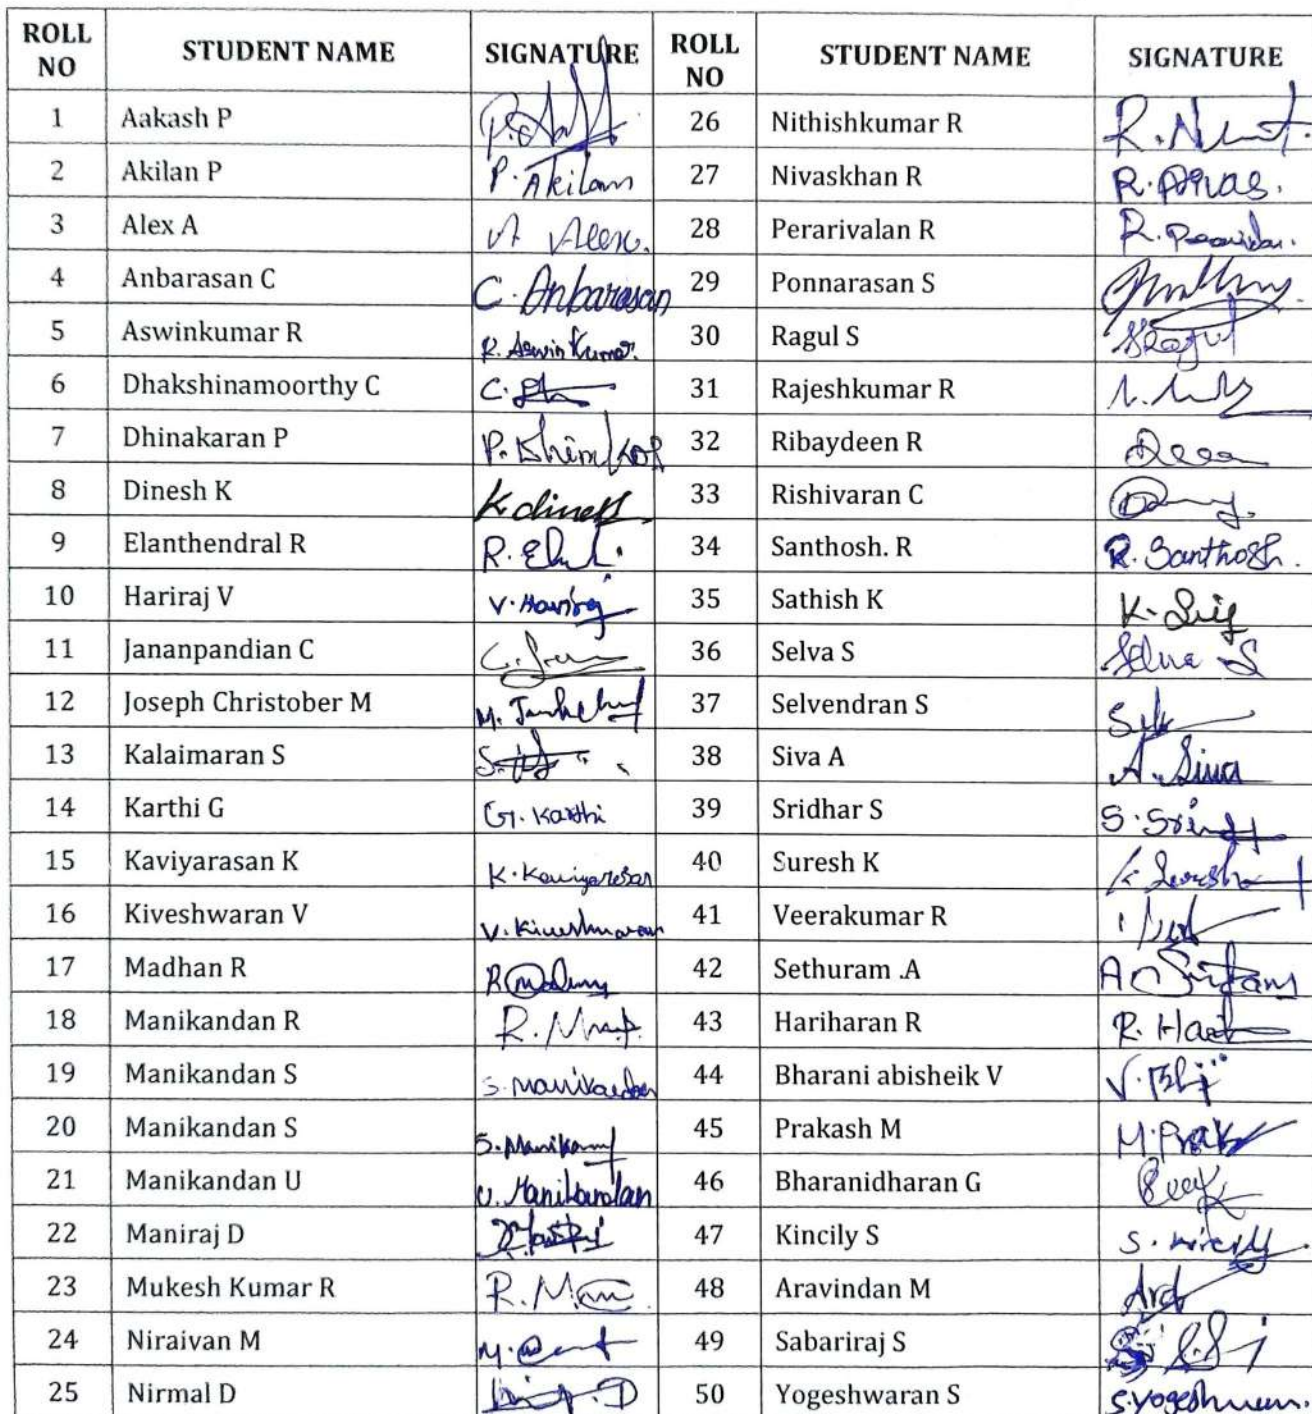 ROLL NO STUDENT NAME SIGNATURE ROLL NO STUDENT NAME SIGNATURE
1 Aakash P 26 Nithishkumar R
2 Akilan P P. Akilan 27 Nivaskhan R
3 Alex A 28 Perarivalan R
4 Anbarasan C C. Anbarasan 29 Ponnarasan S
5 Aswinkumar R R. Aswin Kumar. 30 Ragul S
6 Dhakshinamoorthy C 31 Rajeshkumar R
7 Dhinakaran P 32 Ribaydeen R
8 Dinesh K K dinesh 33 Rishivaran C
9 Elanthendral R 34 Santhosh. R R. Santhosh.
10 Hariraj V V. Hariraj 35 Sathish K
11 Jananpandian C 36 Selva S Selva S
12 Joseph Christober M 37 Selvendran S
13 Kalaimaran S 38 Siva A A. Siva
14 Karthi G G. Karthi 39 Sridhar S
15 Kaviyarasan K K. Kaviyarasan 40 Suresh K K Suresh
16 Kiveshwaran V V. Kiveshwaran 41 Veerakumar R
17 Madhan R 42 Sethuram .A
18 Manikandan R 43 Hariharan R
19 Manikandan S S. Manikandan 44 Bharani abisheik V
20 Manikandan S 45 Prakash M
21 Manikandan U U. Manikandan 46 Bharanidharan G
22 Maniraj D 47 Kincily S S. Kincily
23 Mukesh Kumar R 48 Aravindan M
24 Niraivan M 49 Sabariraj S
25 Nirmal D 50 Yogeshwaran S